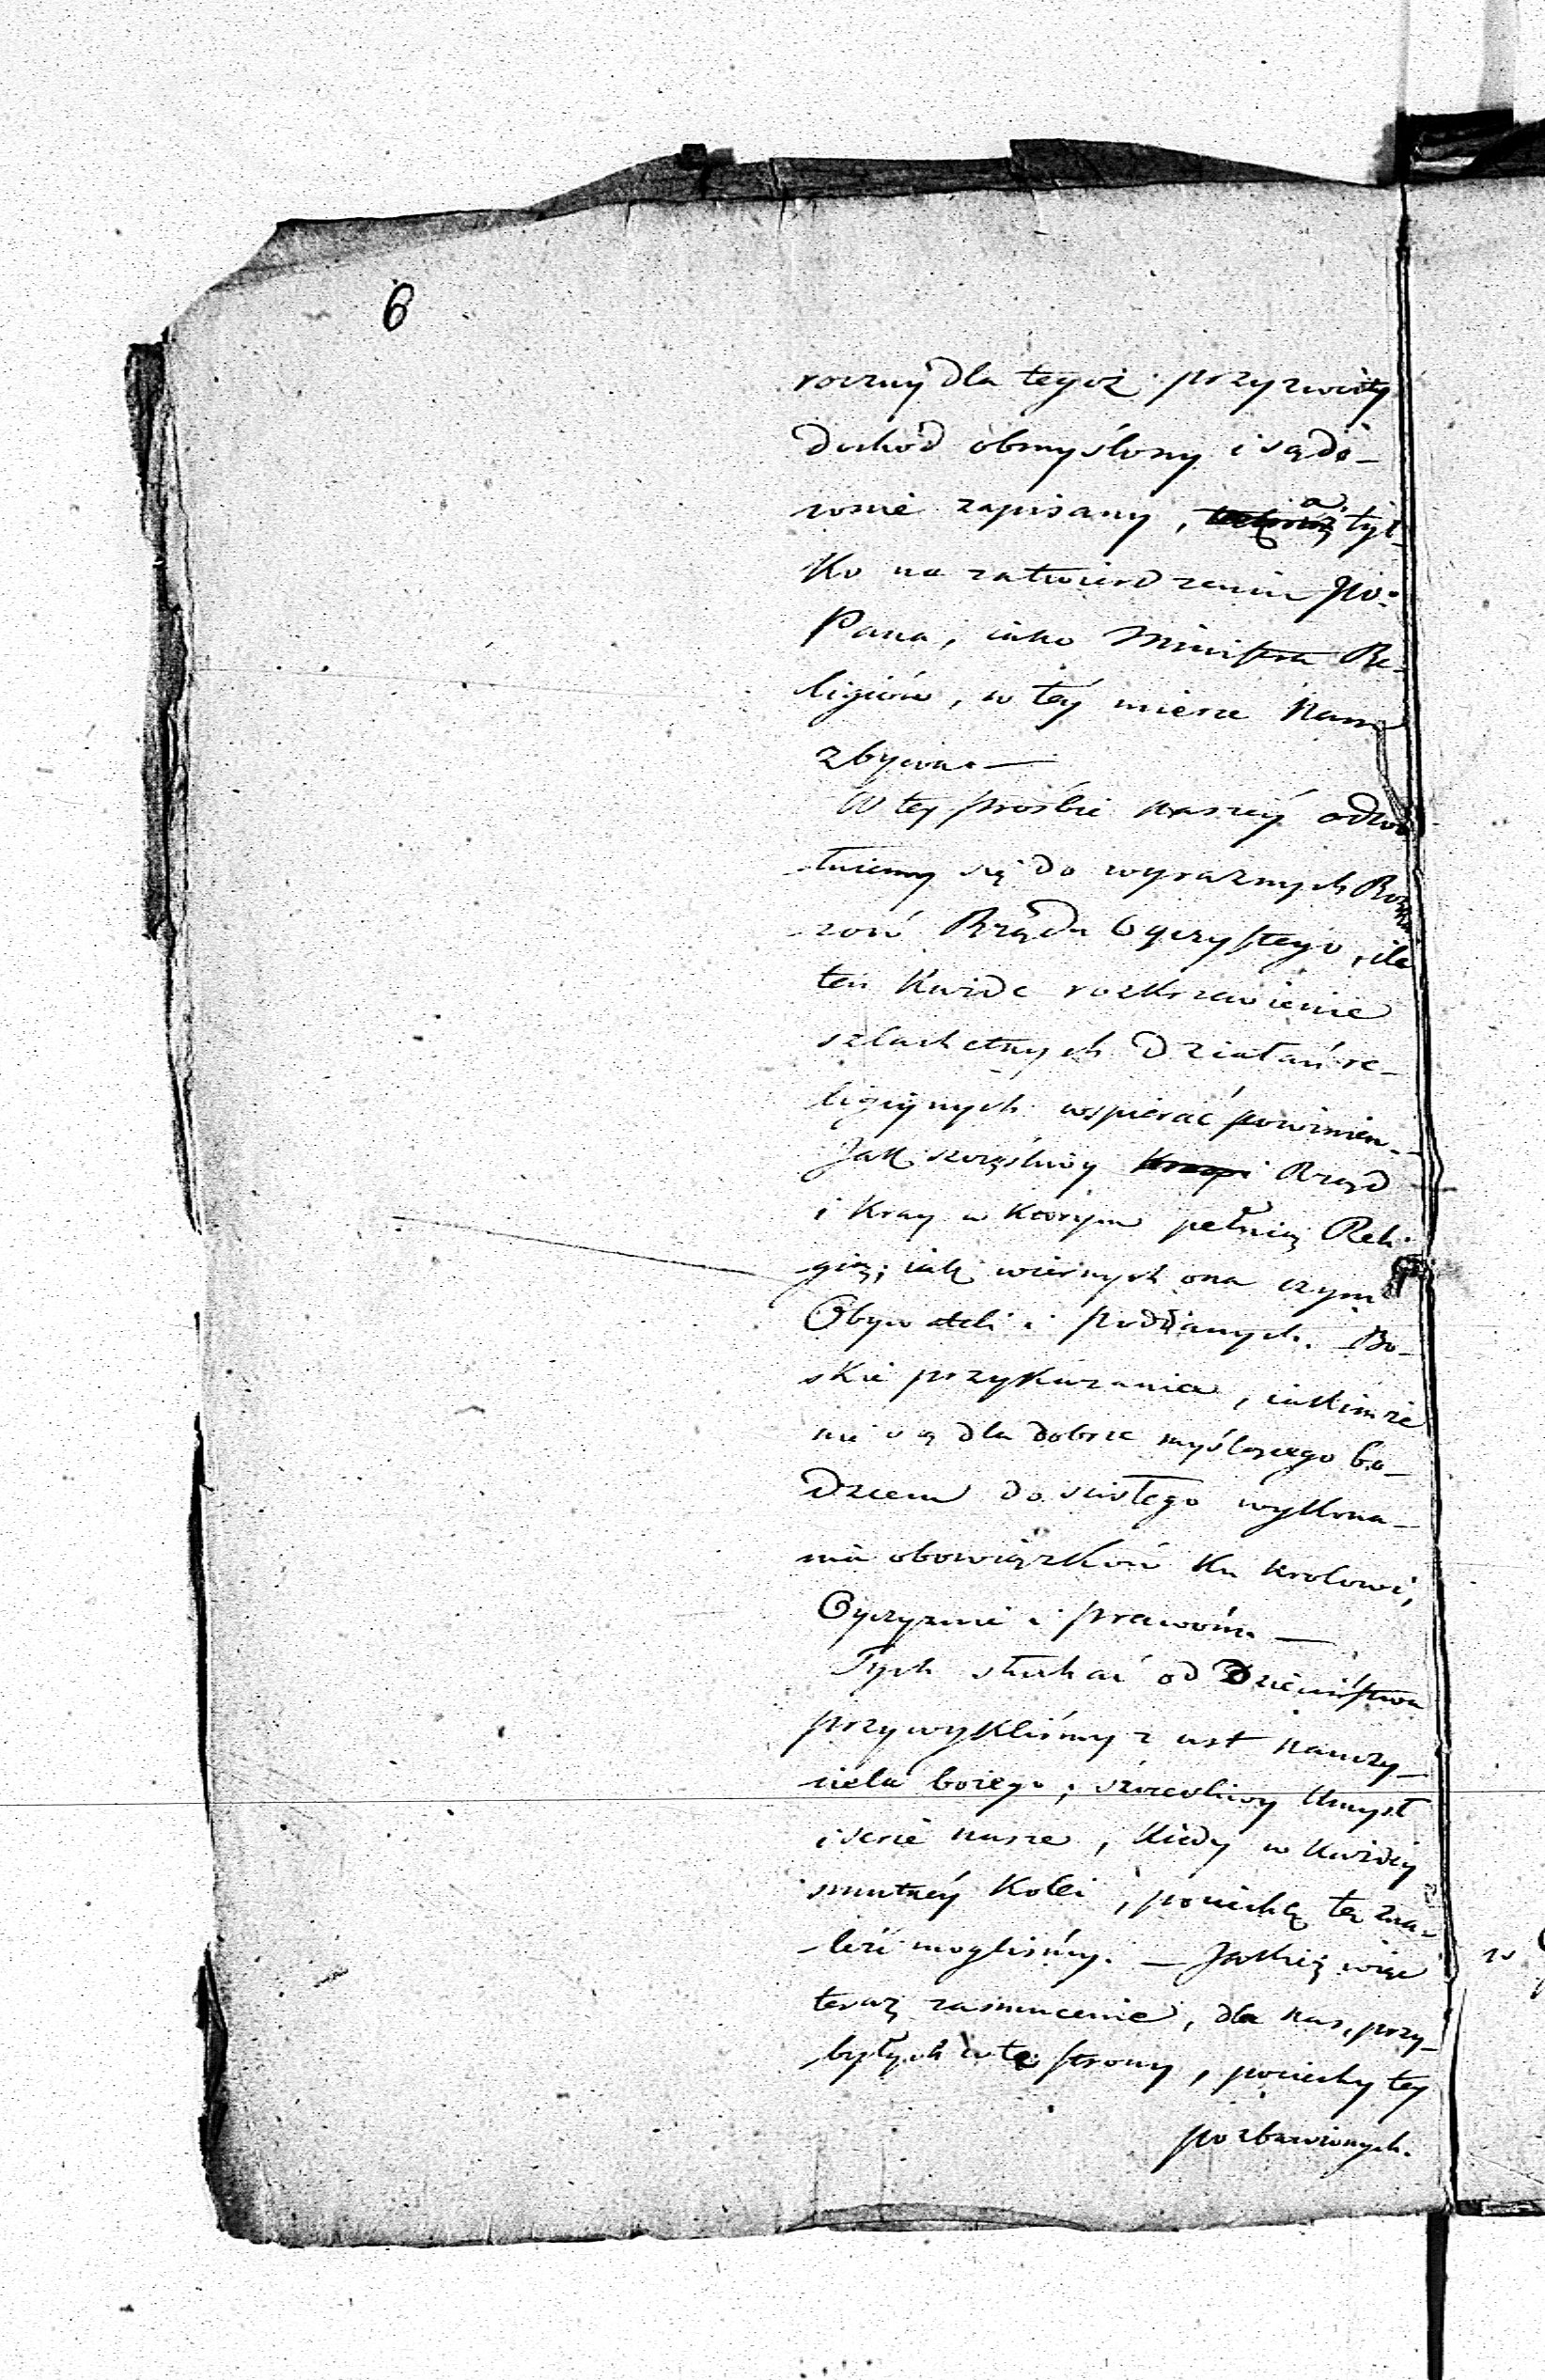 6
roczny dla tegoż przyzwoity
dochod obmyślony i sądo-
wnie zapisany, a tyl-
ko na zatwierdzeniu
Pana, iako Ministra Re-
ligiów, w téy mierze Nam
zbywa. —
W tey prośbie naszéy odwo-
łuiemy się do wyraznych
Rządu Oyczystego, ile
ten każde rozkrzewienie
szlachetnych Działań re-
ligiynych wspierać powinien.
Jak szczęśliwy Rząd
i Kray w którym pełnią Reli-
gią; iak wiernych ona czyni
Obywateli i poddanych. Bo-
skie przykazania, iakimże
nie są dla dobrze myślącego bo-
dzcem do scisłego wykona-
nia obowiązków ku Krolowi,
Oyczyznie i prawóm. —
Tych słuchać od Dzieciństwa
przywykliśmy z ust nauczy-
ciela bożego; szczęśliwy Umysł
i serce nasze, kiedy w każdéy
smutnéy Kolei, pociechę tę zna-
leźć mogliśmy. — Jakież więc
teraz zasmucenie, dla nas, przy-
byłych w te strony, pociechy tey
pozbawionych.